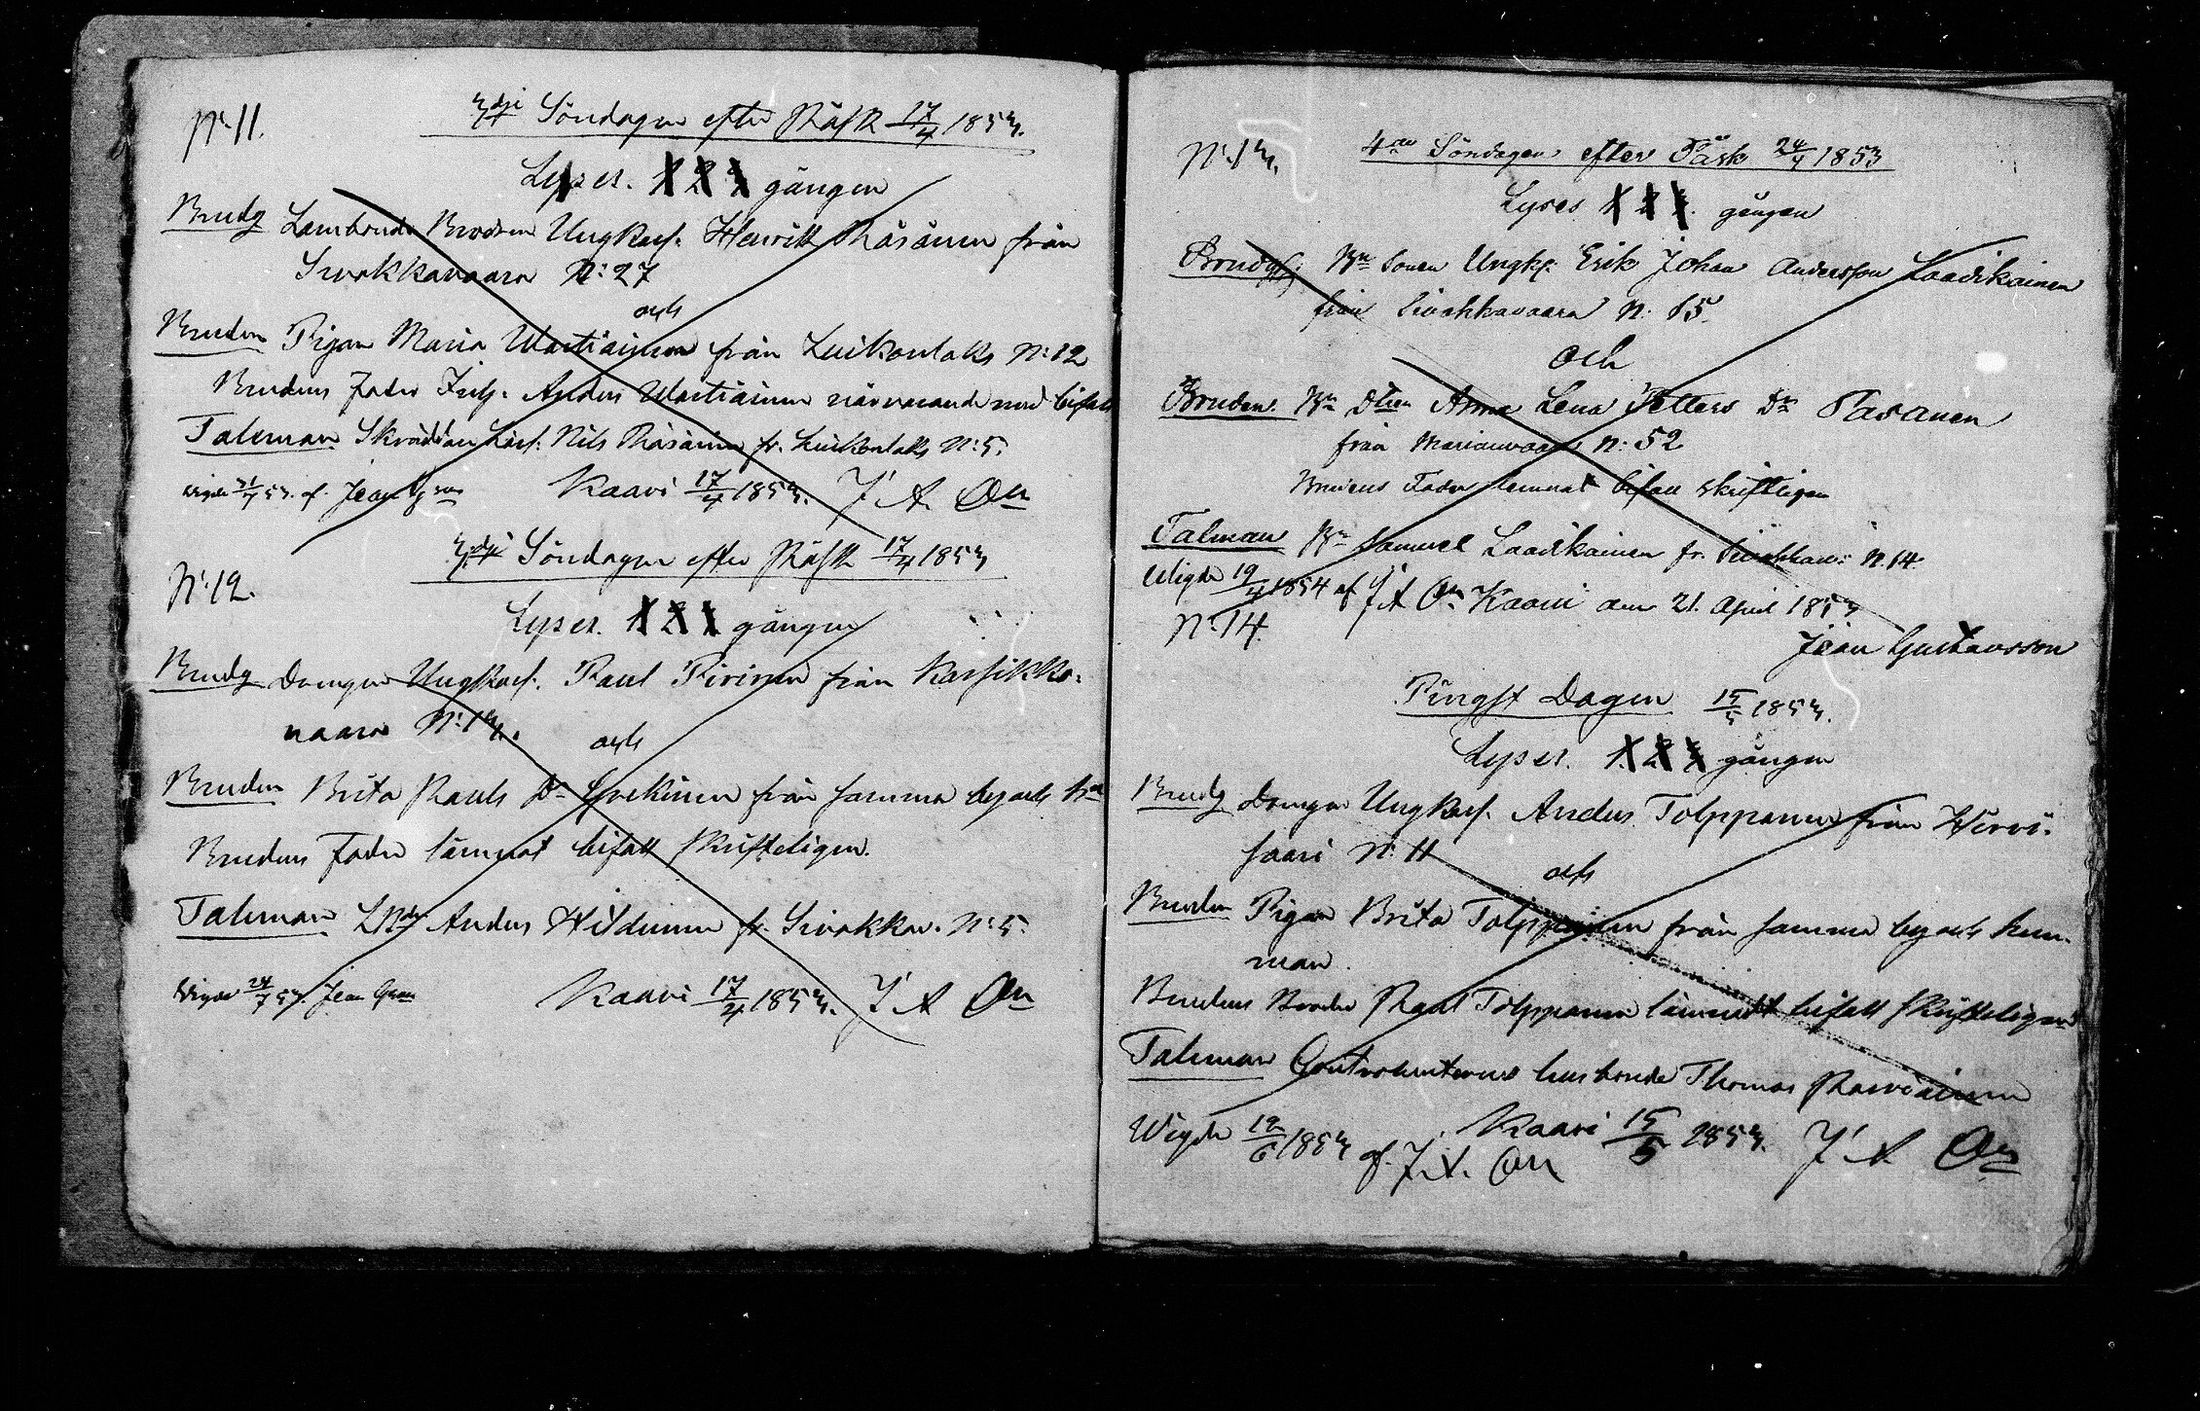 N:11.
3dje Söndagen efter Påsk 17/4 1853.
Lyses. 1 2 3 gången
Brudg Landbonde Brodren Ungkarl. Henrik Räsänen från
Sivakkavaara N:27
och
Bruden Pigan Maria Wartiainen från Luikonlaks N:12
Brudens Fader Anders Wartiainen närvarande med bifall
Taleman Skräddan Nils Räsänen fr. Luikonlaks N:5.
Vigde 31/7 53. af. Jean Gson
Kaavi 17/4 1853. J. A. On
N:12.
3dje Söndagen efter Påsk 17/4 1853
Lyses. 1 2 3 gången
Brudg Drengen Ungkarl. Paul Pirinen från Karsikko-
vaara N:13.
och
Bruden Brita Pauls Dr från samma by och N:
Brudens Fader lämnat bifall skrifteligen.
Talman Anders fr. Sivakkav. N:5.
Vigde 24/7 53. Jean Gson
Kaavi 17/4 1853. J A On
N:13.
4de Söndagen efter Påsk 24/4 1853
Lyses 1 2 3. gången
Brudg: Bn Sonen Ungk: Erik Johan Andersson Laadikainen
från Sivakkavaara N: 15.
och
Bruden. Bn Dtren Anna Lena Petters Dr Pasanen
från Marianvaara N: 52
Brudens Fader lemnat bifall skriftligen
Talman Bn Samuel Laadikainen fr. Sivakkav: N.14.
Wigde 19/4 1854 af J. A On
Kaavi den 21. April 1853
Jean Gustavsson
N:14.
Pingst Dagen 15/5 1853.
Lyses. 1. 2 3 gången
Brudg Drengen Ungkarl. Anders Tolppanen från Hirvi-
saari N: 11
och
Bruden Pigan Brita Tolppanen från samma by och hem-
man.
Brudens Broder Paul Tolppanen lämnat bifall skrifteligen
Talman husbonde Thomas
Wigde 12/6 1853 af. J. A. On
Kaavi 15/5 1853. J. A. On